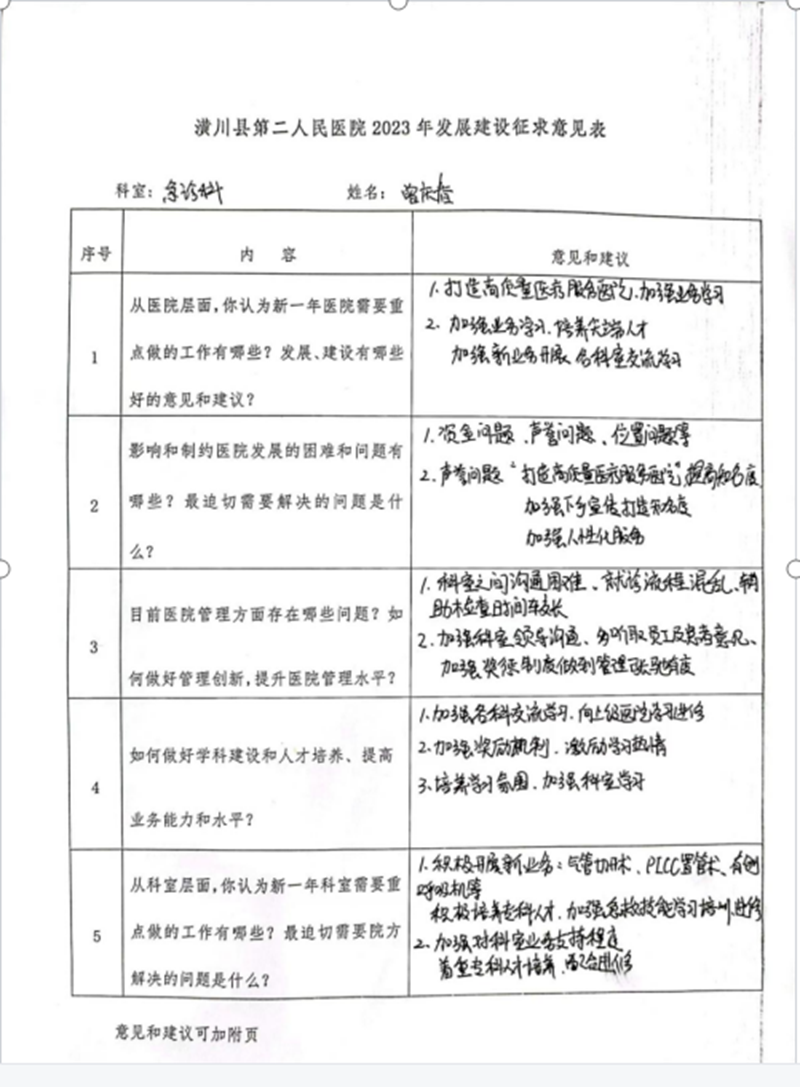 潢川县第二人民医院 2023 年发展建设征求意见表
科室：急诊科 姓名：
序号 内 容 意见和建议
1 从医院层面，你认为新一年医院需要重
点做的工作有哪些？发展、建设有哪些
好的意见和建议？
1. 打造高质量医疗服务医院，加强业务学习
2. 加强业务学习，培养尖端人才
加强新业务开展，各科室交流学习
2 影响和制约医院发展的困难和问题有
哪些？最迫切需要解决的问题是什
么？
1. 资金问题、声誉问题、位置问题等
2. 声誉问题“打造高质量医疗服务医院”，提高知名度
加强下乡宣传，打造知名度
加强人性化服务
3 目前医院管理方面存在哪些问题？如
何做好管理创新，提升医院管理水平？
1. 科室之间沟通困难、就诊流程混乱、辅
助检查时间较长
2. 加强科室领导沟通、多听取员工及患者意见、
加强奖惩制度做到管理张弛有度
4 如何做好学科建设和人才培养、提高
业务能力和水平？
1. 加强各科交流学习，向上级医院学习进修
2. 加强奖励机制，激励学习热情
3. 培养学习氛围，加强科室学习
5 从科室层面，你认为新一年科室需要重
点做的工作有哪些？最迫切需要院方
解决的问题是什么？
1. 积极开展新业务：气管切开术、PICC置管术、有创
呼吸机等
积极培养专科人才，加强急救技能学习培训，进修
2. 加强对科室业务支持程度
着重专科人才培养，配合进修
意见和建议可加附页